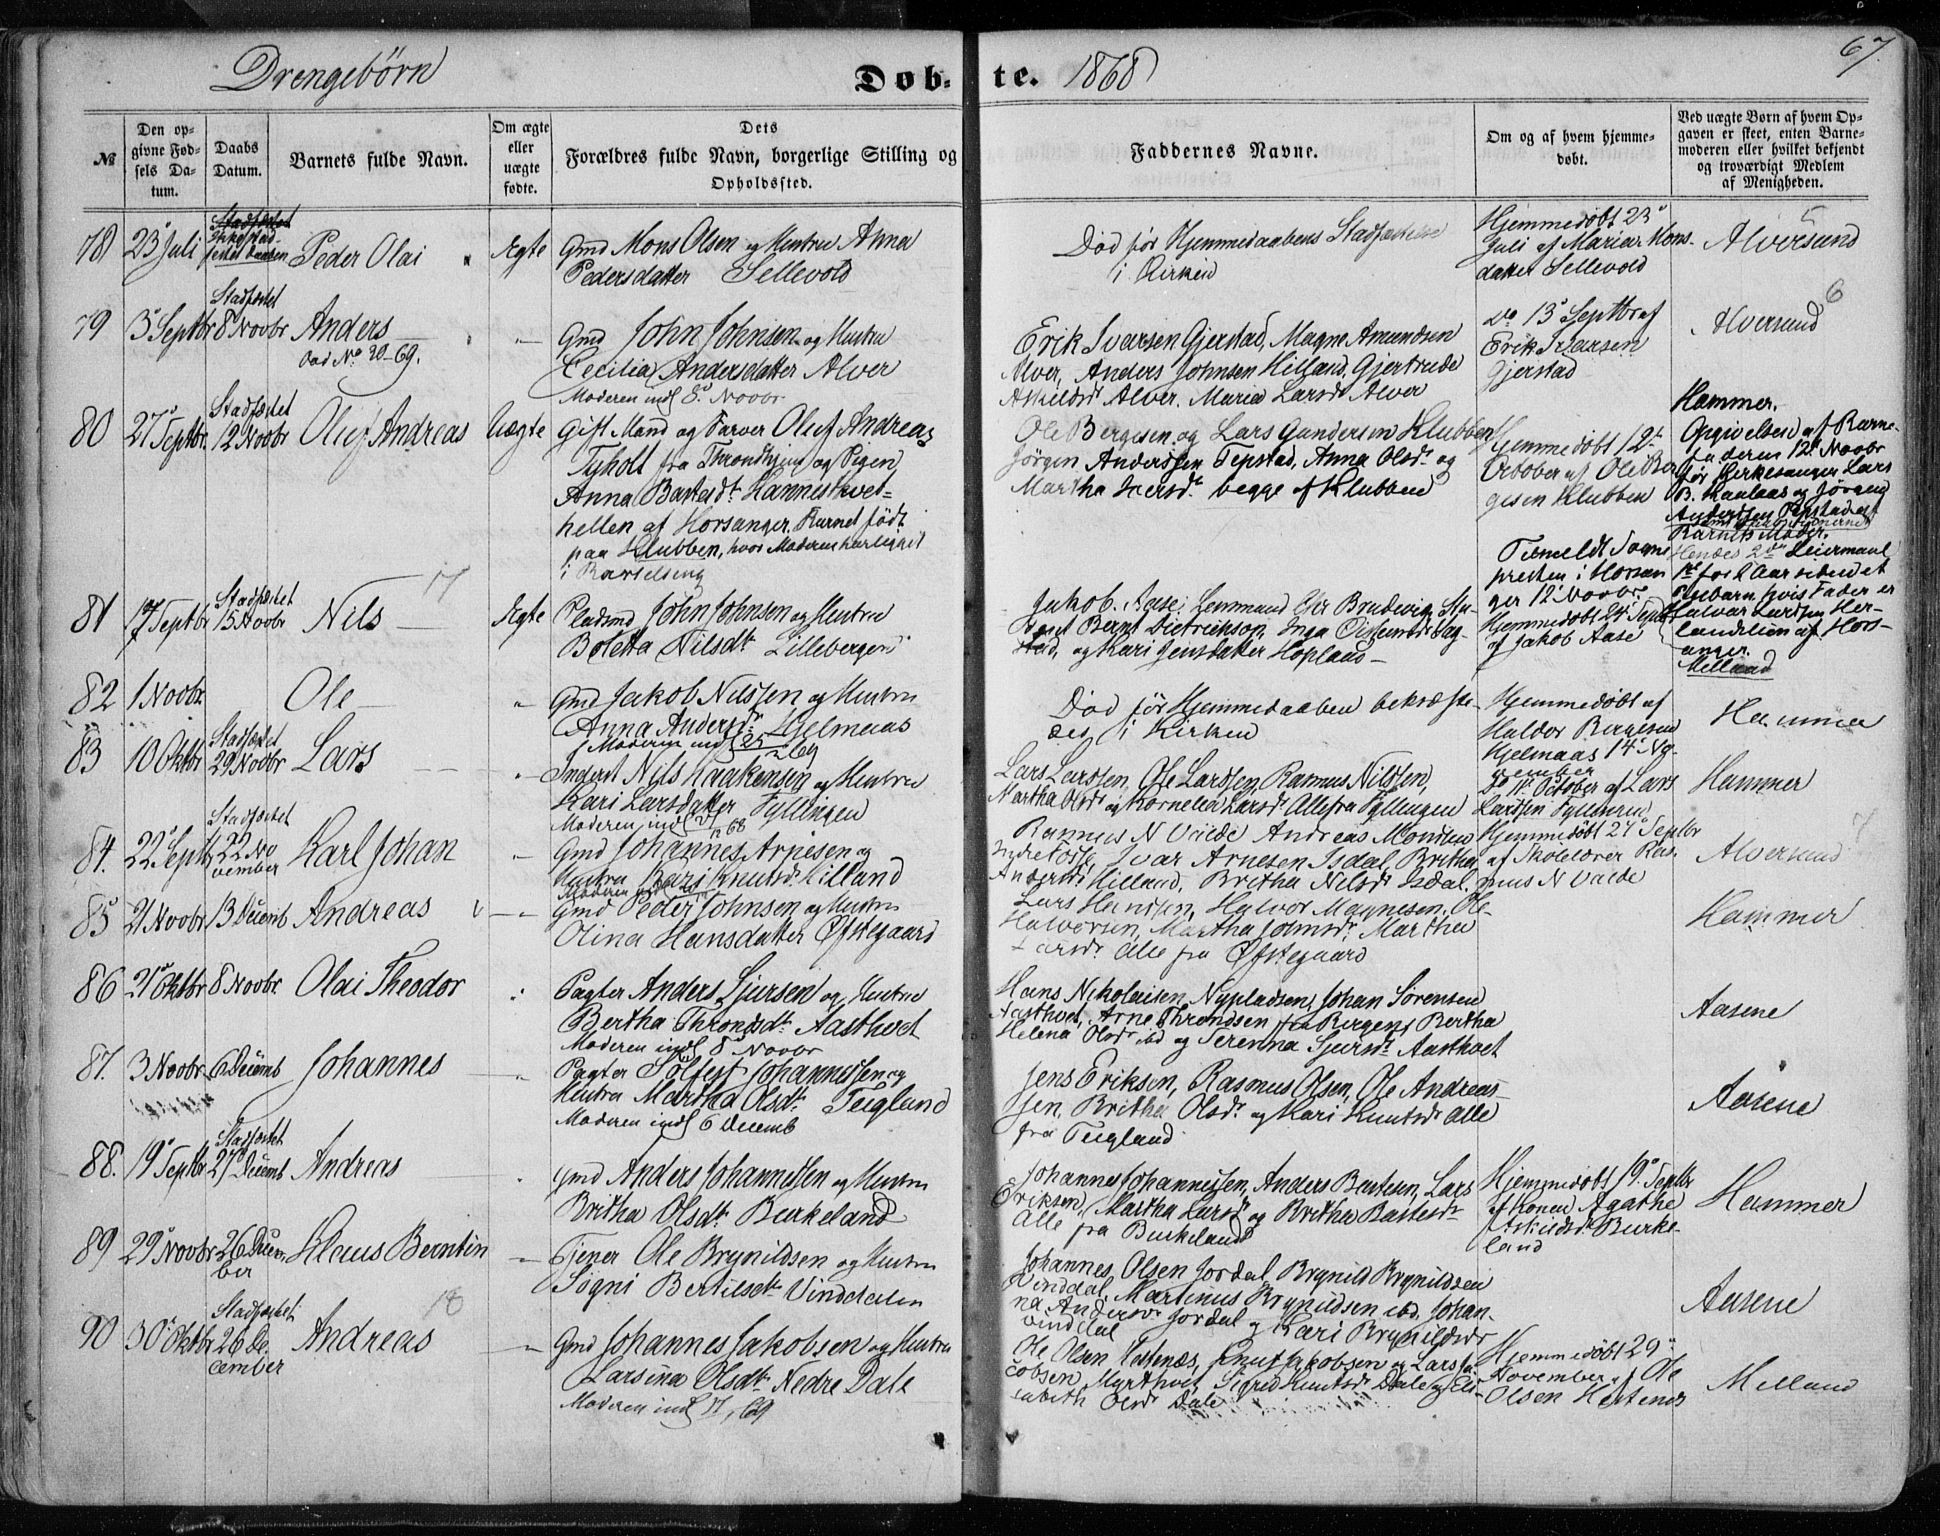 67.
Drengebörn
Døb- te. 1868
№
Den op-
givne Fød-
sels Da-
tum.
Daabs
Datum.
Barnets fulde Navn.
Om ægte
eller
uægte
fødte.
Dets
Forældres fulde Navn, borgerlige Stilling og
Opholdssted.
Faddernes Navne.
Om og af hvem hjemme-
døbt.
Ved uægte Børn af hvem Op-
gaven er skeet, enten Barne-
moderen eller hvilket bekjendt
og troværdigt Medlem
af Menigheden.
78 23 Juli
Stadfæstet
Peder Olai
Ægte
Gmd Mons Olsen og Hustru Anna
Pedersdatter Sellevold
Död för Hjemmedaabens Stadfæstelse
i Kirken
Hjemmedöbt 23
Juli af Maria Mons-
datter Sellevold
5
Alversund
79 3 Septbr
Stadfæstet
8 Novbr
Anders
Död No 20-69.
Gmd John Johnsen og Hustru
Cecilia Andersdatter Alver
Moderen indl 8 Novbr
Erik Ivarsen Gjerstad, Magne Amundsen
Alver, Anders Johnsen Hilland, Gjertrude
Askildsdr Alver. Maria Larsdr Alver
do 13 Septbr af
Erik Ivarsen
Gjerstad
6
Alversund
80 27 Septbr.
Stadfæstet
12 Novbr
Oluf Andreas
Uægte
Gift Mand og Farver Oluf Andreas
Tyholt fra Throndhjem og Pigen
Anna Bastesdt. Hannisthvet-
hellen af Hosanger. Barnet født
paa Klubben, hvor Moderen har ligget
i Barselseng
Ole Bergesen og Lars Gundersen Klubben
Jörgen Anderssen Tepstad, Anna Olsdr og
Martha Iversdr begge af Klubben
Hjemmedöbt 12
October af Ole Ber
gesen Klubben
Tilmeldt Sogne
presten i Hosan
ger 12 Novbr
Hammer.
Opgivelsen af Barne-
faderen 12 Novbr
for Kirkesanger Lars
B. og Jörgen
Anderssen Tepstad af
Barnets Moder.
Hendes 2den Leiermaal
1ste for Aar siden et
hvis Fader er
Halvar Larssen Her-
landslien af Hos-
anger.
81 17 Septbr
Stadfæstet
15 Novbr
Nils
17
Ægte
Pladsmd John Johnsen og Hustru
Boletta Nilsdt. Lillebergen
Jakob Aase, Lensmand Chr Brudevig, Stu-
dent Bernt Dietrickson, Inga
og Kari Jensdatter Hopland
Hjemmedöbt 24 Septbr
af Jakob Aase
Melland
82 1 Novbr.
Ole
Gmd Jakob Nilssen og Hustru
Anna Andersdr Hjelmaas
Moderen indl 25/2 69
Död för Hjemmedaaben bekræfte-
des i Kirken
Hjemmedöbt af
Haldor Bergesen
Hjelmaas 14 No-
vember
Hammer
83 10 Oktbr
Stadfæstet
29 Novbr
Lars
Inderst Nils Haakonsen og Hustru
Kari Larsdatter Fyllingen
Moderen indl 68
Lars Larssen, Ole Larssen, Rasmus Nilssen,
Martha Olsdr og Kornelia Larsdr Alle fra Fyllingen
do 11 October af Lars
Larssen Fyllingen
Hammer
84. 22 Septbr
Stadfæstet
22 No
vember
Karl Johan
Gmd Johannes Arnesen og
Hustru Kari Knutsdr. Hilland
Rasmus N Vilde Andreas Monsen
Ivar Arnesen Isdal, Britha
Andersdr Hilland, Britha Nilsdr Isdal.
Hjemmedöbt 24 Septbr
af Skolelærer Ras-
mus N Vilde
7
Alversund
85 21 Novbr
13 Decmb
Andreas
Gmd Peder Johnsen og Hustru
Olina Hansdatter Øfstegaard
Lars Hanssen, Halvor Magnesen, Ole
Halvorsen, Martha Johnsdr. Martha
Larsdr Alle fra Øfstegaard
Hammer
86 21 Oktbr
8 Novbr.
Olai Theodor
Pagter Anders Sjursen og Hustru
Bertha Thronsdt. Aasthvet
Moderen indl 8 Novbr
Hans Nikolaisen Nypladsen, Johan Sörensen
Aasthvet, Arne Throndsen fra Bergen, Bertha
Helena Olsdr ibd og Severina Sjursdr. Aasthvet
Aasene
87. 3 Novbr
6 Decmb
Johannes
Pagter Solfest Johannessen og
Hustru Martha Olsdt. Teigland
Moderen indl 6 Decemb
Jens Eriksen, Rasmus Olsen, Ole Andreas-
sen, Britha Olsdr og Kari Knutsdr Alle
fra Teigland
Aasene
88. 19 Septbr
Stadfæstet
27 Decmb
Andreas
Gmd Anders Johannessen og Hustru
Britha Olsdt. Burkeland
Johannes Johannessen, Anders Bastesen, Lars
Eriksen, Martha Larsdr og Britha Bastesdr
Alle fra Burkeland
Hjemmedöbt 19 Septbr
af Konen Agathe
Askildsdr. Burke-
land
Hammer
89 29 Novbr
26 Decem
ber
Klaus Berntin
Tjener Ole Brynildsen og Hustru
Sogni Bertilsdt. Vinddalen
Johannes Olsen Jordal, Brynild Brynildsen
Vinddal, Martinus Brynildsen ibd. Johan-
na Andersdr Jordal og Kari Brynildsdr
Vinddal
Aasene
90 30 Oktbr
Stadfæstet
26 De-
cember
Andreas
18
Gmd Johannes Jakobsen og Hustru
Larsina Olsdt. Nedre Dale
Moderen indl 69
Ole Olsen Hestenæs, Knut Jakobsen og Lars Ja-
cobsen Myrthvet, Sigrid Knutsdr Dale og Eli-
sabeth Olsdr Dale
Hjemmedöbt 29
November af Ole
Olsen Hestenæs
Melland